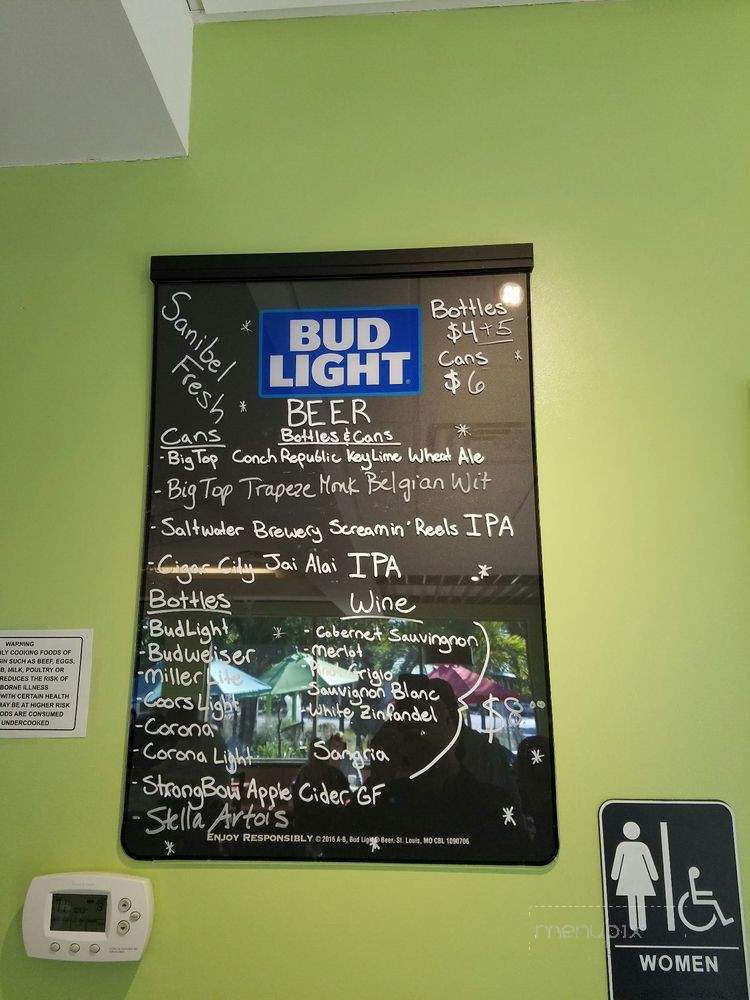 Sanibel
Fresh
BUD
LIGHT
Bottles
$4+5
Cans
$6
BEER
Cans
Bottles & Cans
- Big Top Conch Republic KeyLime Wheat Ale
- Big Top Trapeze Monk Belgian Wit
- Saltwater Brewery Screamin' Reels IPA
- Cigar City Jai Alai IPA
Bottles
- BudLight
- Budweiser
- Miller Lite
- Coors Light
- Corona
- Corona Light
- StrongBow Apple Cider GF
- Stella Artois
Wine
- Cabernet Sauvingnon
- Merlot
- Pinot Grigio
- Sauvignon Blanc
- White Zinfandel
- Sangria
$8
ENJOY RESPONSIBLY © 2016 A-B, Bud Light® Beer, St. Louis, MO CBL 1090706
WARNING
LY COOKING FOODS OF
GIN SUCH AS BEEF, EGGS,
B, MILK, POULTRY OR
REDUCES THE RISK OF
BORNE ILLNESS
WITH CERTAIN HEALTH
MAY BE AT HIGHER RISK
ODS ARE CONSUMED
UNDERCOOKED
WOMEN
menupix